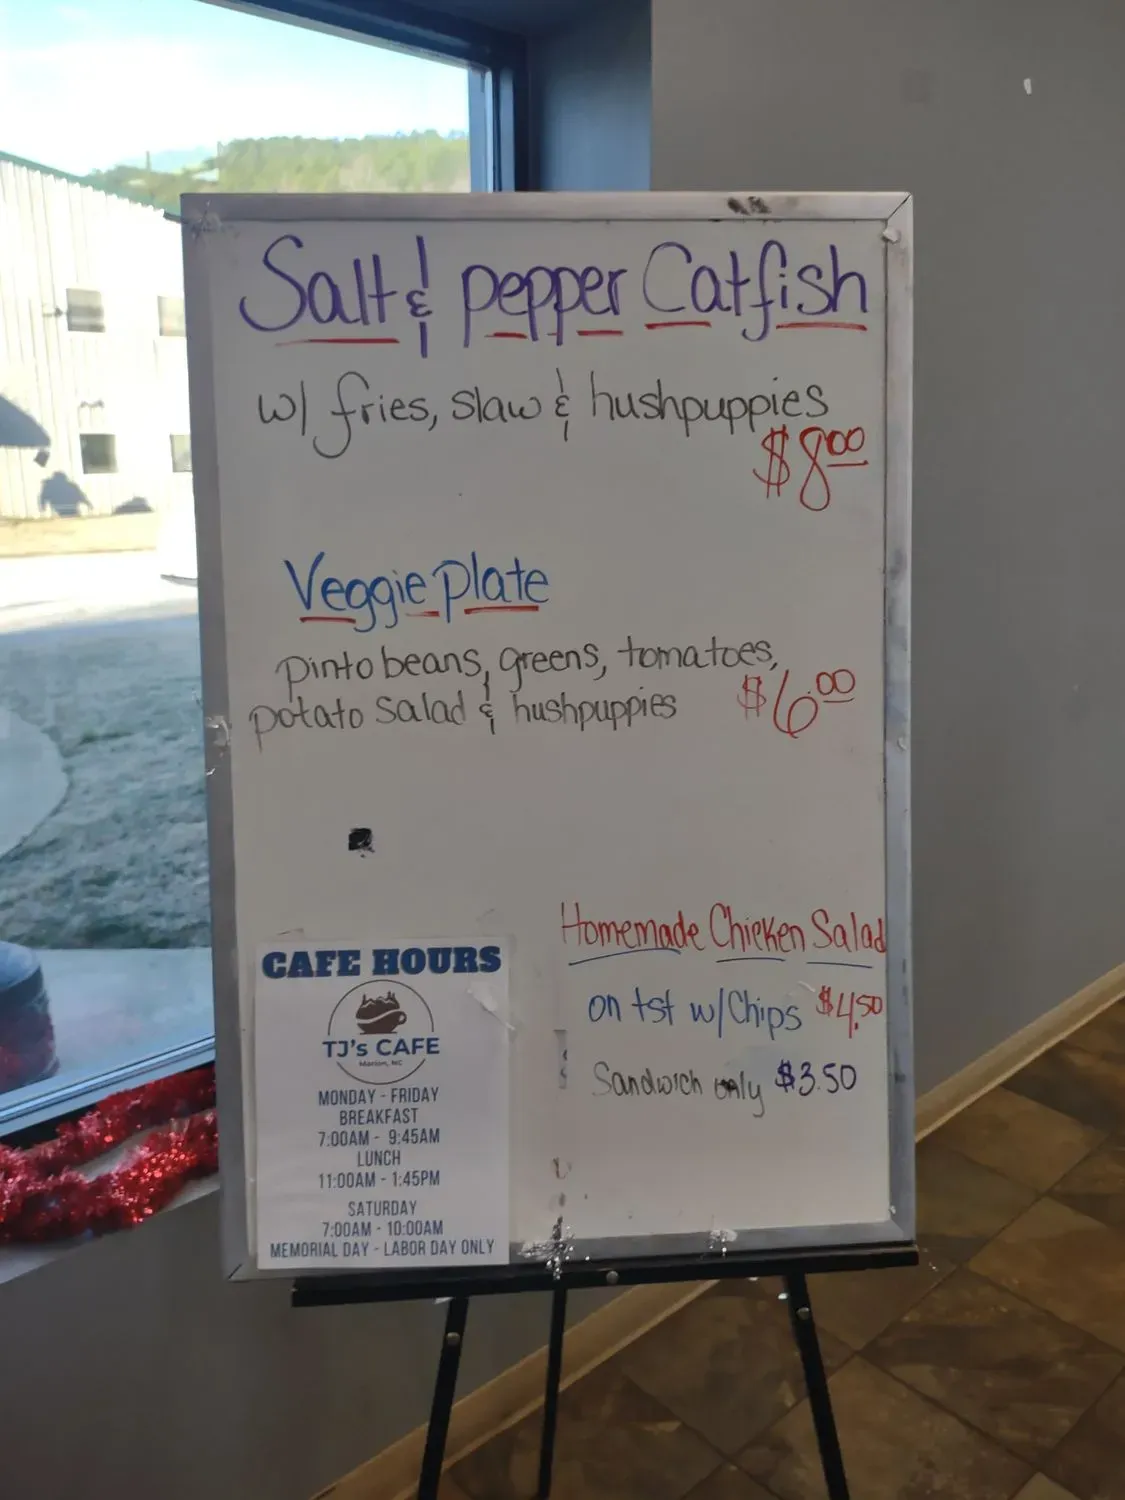 Salt & pepper Catfish
w/ fries, slaw & hushpuppies
$8.00
Veggie plate
pinto beans, greens, tomatoes,
potato salad & hushpuppies $6.00
Homemade Chicken Salad
on tst w/Chips $4.50
Sandwich only $3.50
CAFE HOURS
TJ's CAFE
Marion, NC
MONDAY - FRIDAY
BREAKFAST
7:00AM - 9:45AM
LUNCH
11:00AM - 1:45PM
SATURDAY
7:00AM - 10:00AM
MEMORIAL DAY - LABOR DAY ONLY